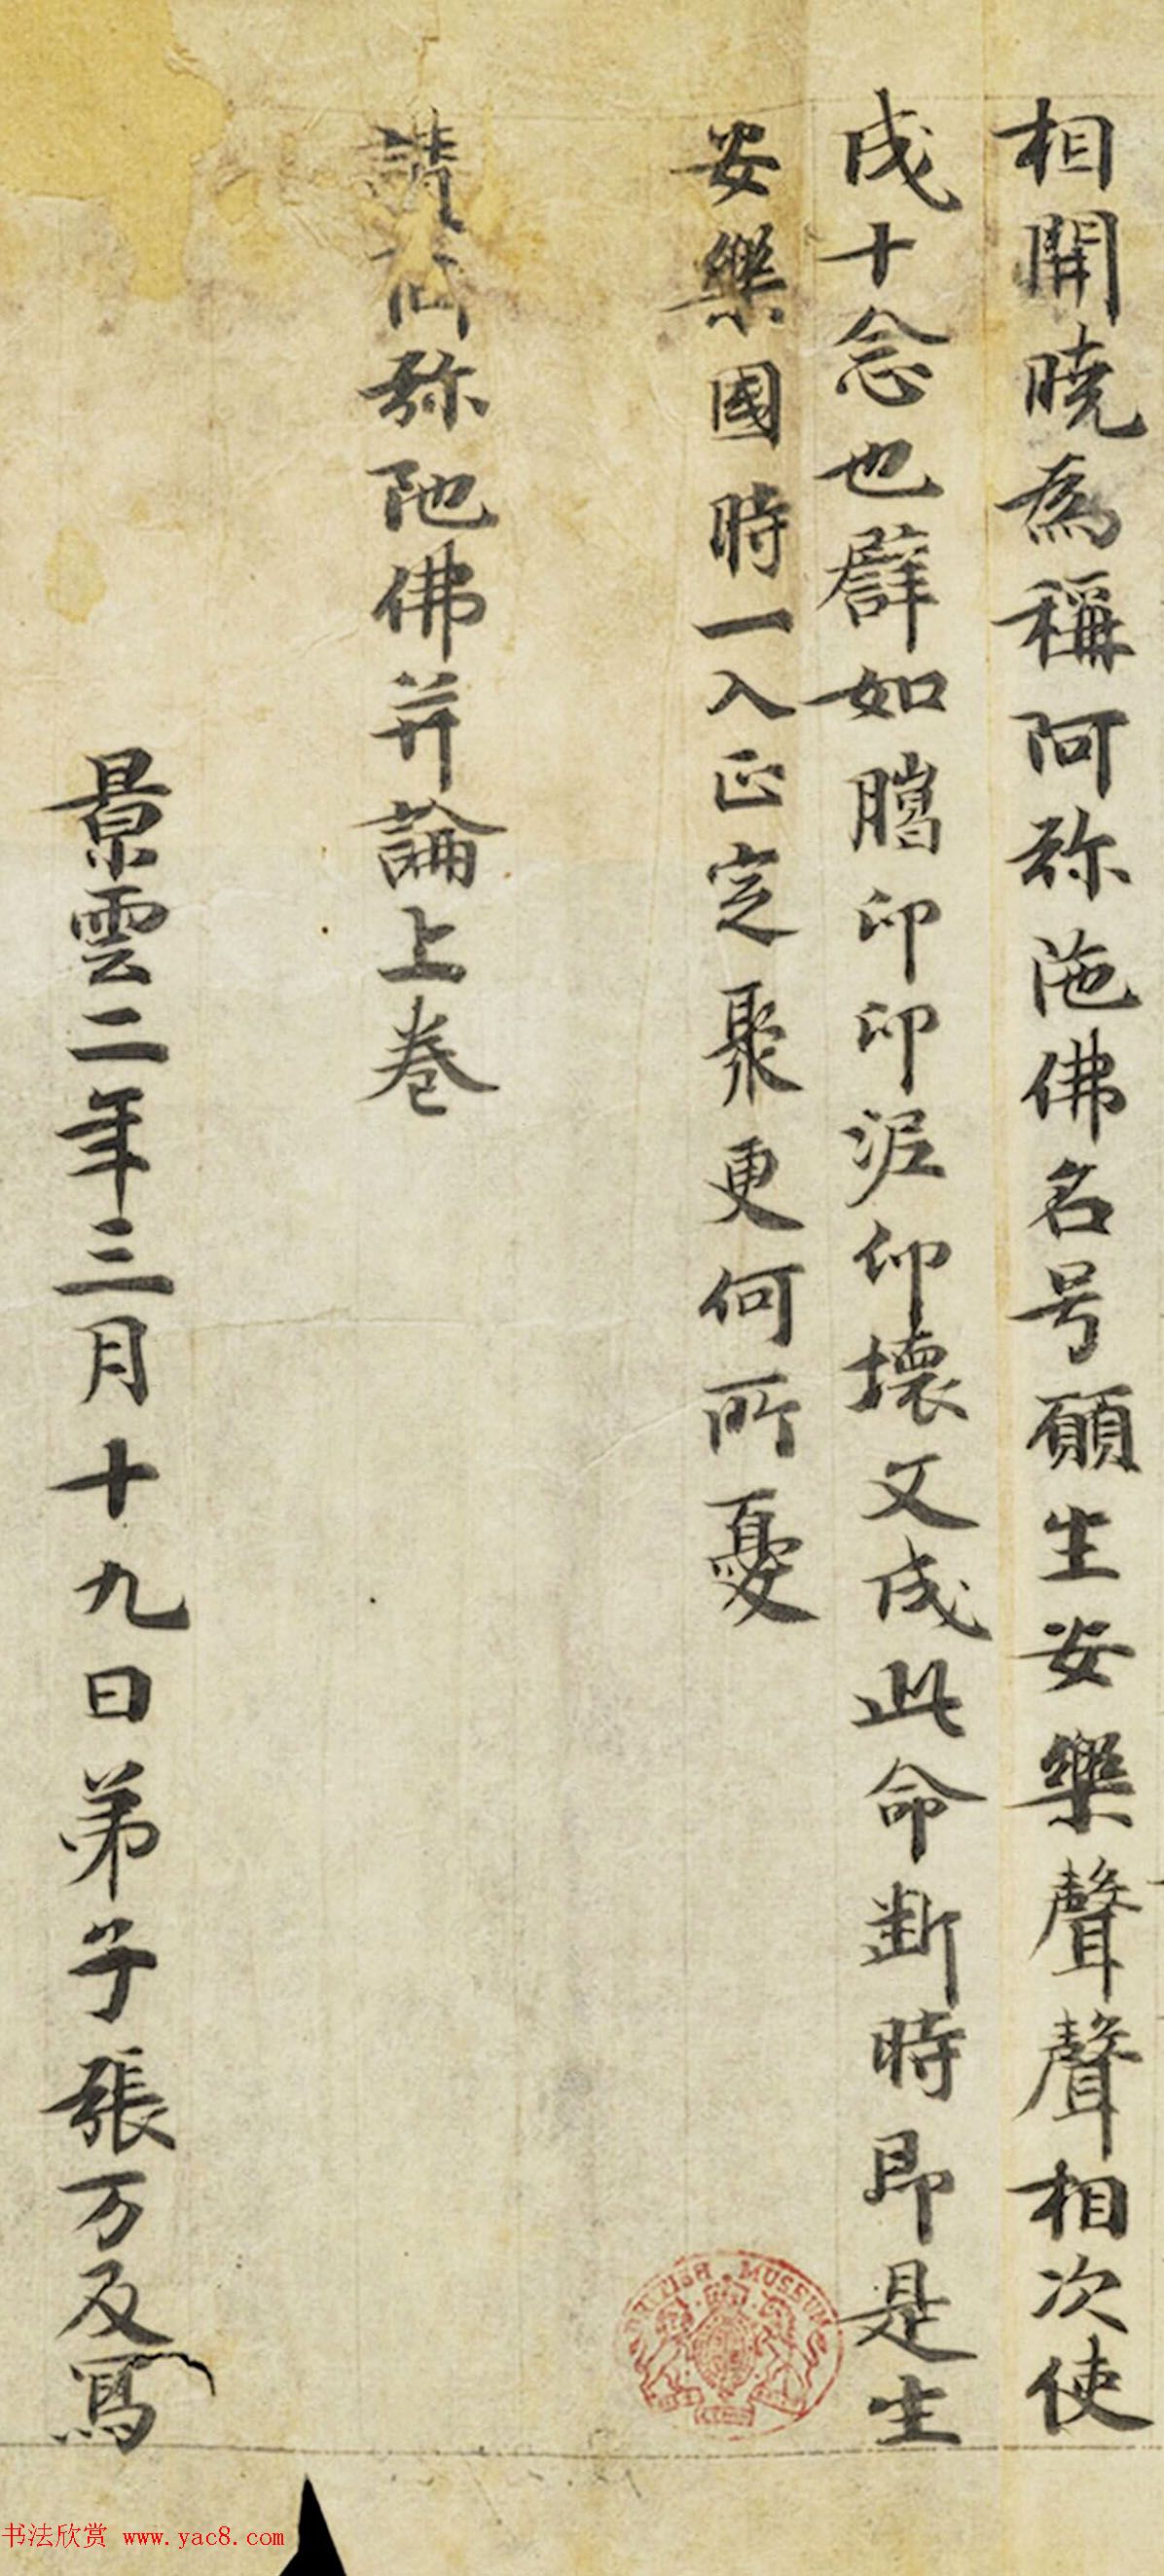 相開曉為稱阿弥陁佛名号願生安樂聲聲相次使
成十念也譬如䗶印印泥印壞文成此命斷時即是生
安樂國時一入正定聚更何所憂
讚 弥陁佛并論上卷
景雲二年三月十九日弟子張万及寫
BRITISH MUSEUM
书法欣赏 www.yac8.com